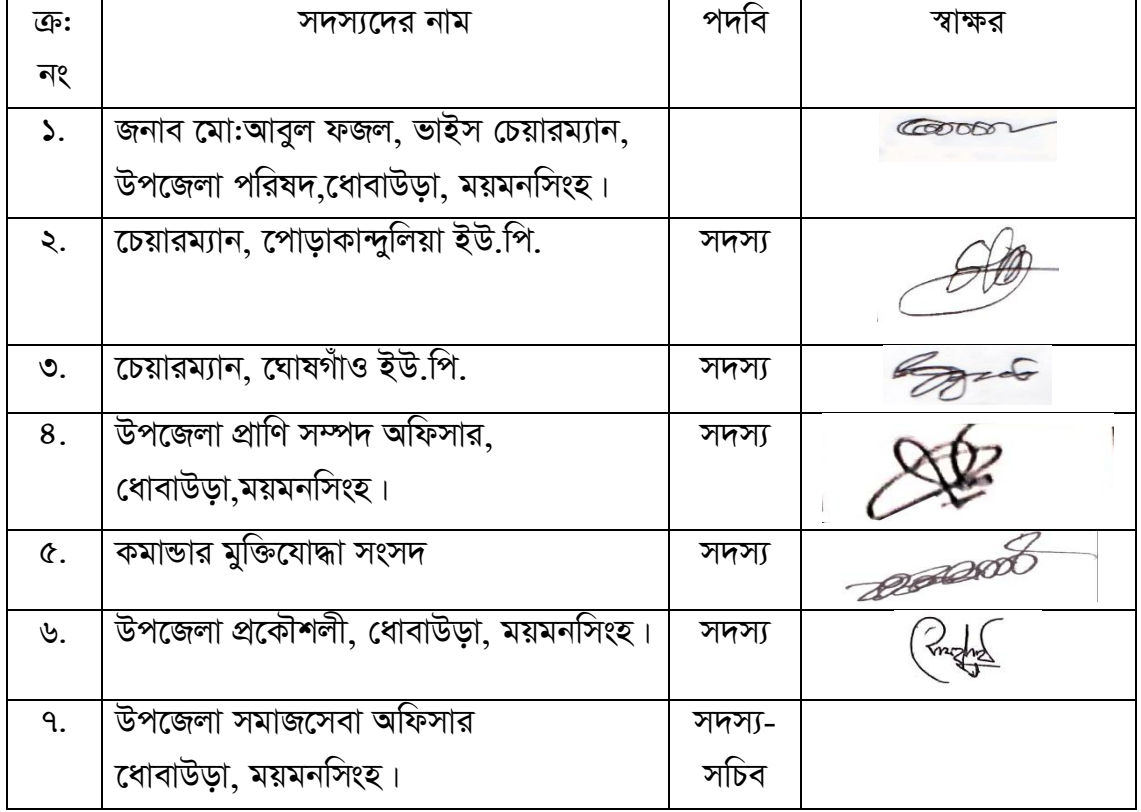 ক্র: সদস্যদের নাম পদবি স্বাক্ষর
নং
১. জনাব মো:আবুল ফজল, ভাইস চেয়ারম্যান,
উপজেলা পরিষদ,ধোবাউড়া, ময়মনসিংহ।
২. চেয়ারম্যান, পোড়াকান্দুলিয়া ইউ.পি. সদস্য
৩. চেয়ারম্যান, ঘোষগাঁও ইউ.পি. সদস্য
৪. উপজেলা প্রাণি সম্পদ অফিসার, সদস্য
ধোবাউড়া,ময়মনসিংহ।
৫. কমান্ডার মুক্তিযোদ্ধা সংসদ সদস্য
৬. উপজেলা প্রকৌশলী, ধোবাউড়া, ময়মনসিংহ। সদস্য
৭. উপজেলা সমাজসেবা অফিসার সদস্য-
ধোবাউড়া, ময়মনসিংহ। সচিব